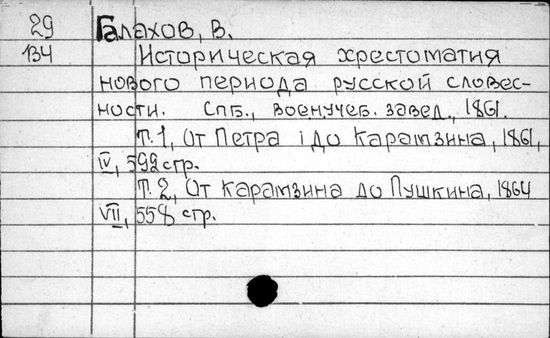 29 Галахов, В.
134 Историческая хрестоматия
нового периода русской словес-
ности. Спб., военучеб. завед., 1861.
Т. 1, От Петра I до Карамзина, 1861,
IV, 592 стр.
Т. 2, От Карамзина до Пушкина, 1864
VII, 558 стр.